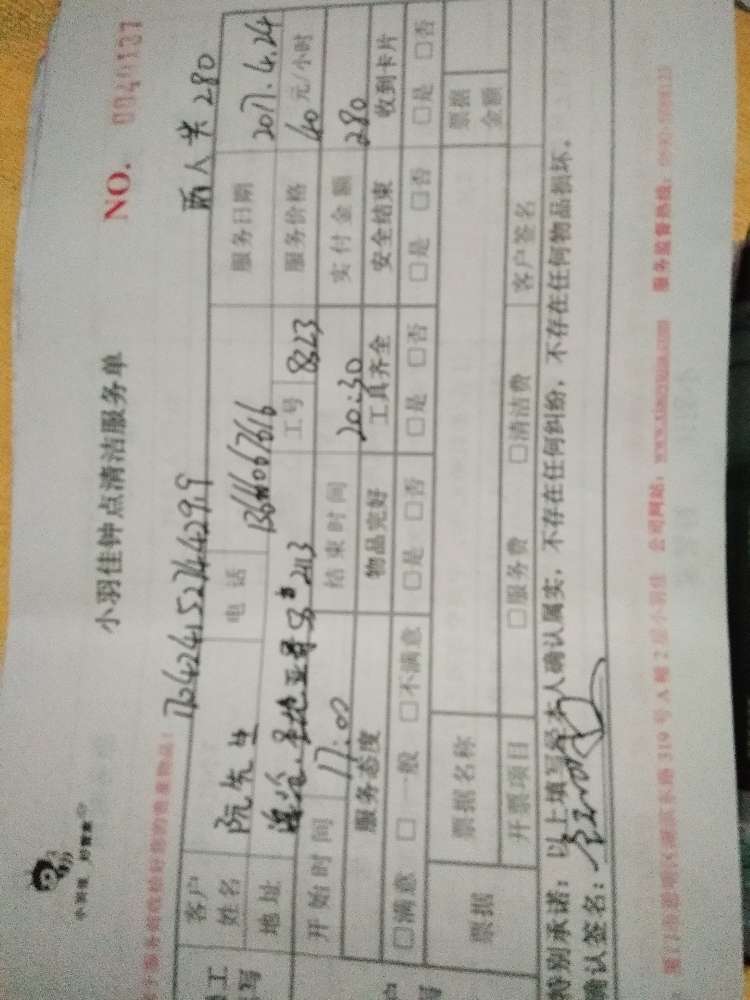 小羽佳 好管家
小羽佳钟点清洁服务单
NO. 0040137
170424152744299
两人共 280
客户姓名 阮先生 电话 服务日期 2017.4.24
地址 工号 8823 服务价格 40 元/小时
开始时间 17:00 结束时间 20:30 实付金额 280
服务态度 物品完好 工具齐全 安全结束 收到卡片
□满意 □一般 □不满意 □是 □否 □是 □否 □是 □否 □是 □否
票据 票据名称 票据金额
开票项目 □服务费 □清洁费 客户签名
特别承诺：以上填写经本人确认属实，不存在任何纠纷，不存在任何物品损坏。
确认签名：
湖滨东路 319 号 A 幢 2 层小羽佳 公司网站： 服务监督热线：